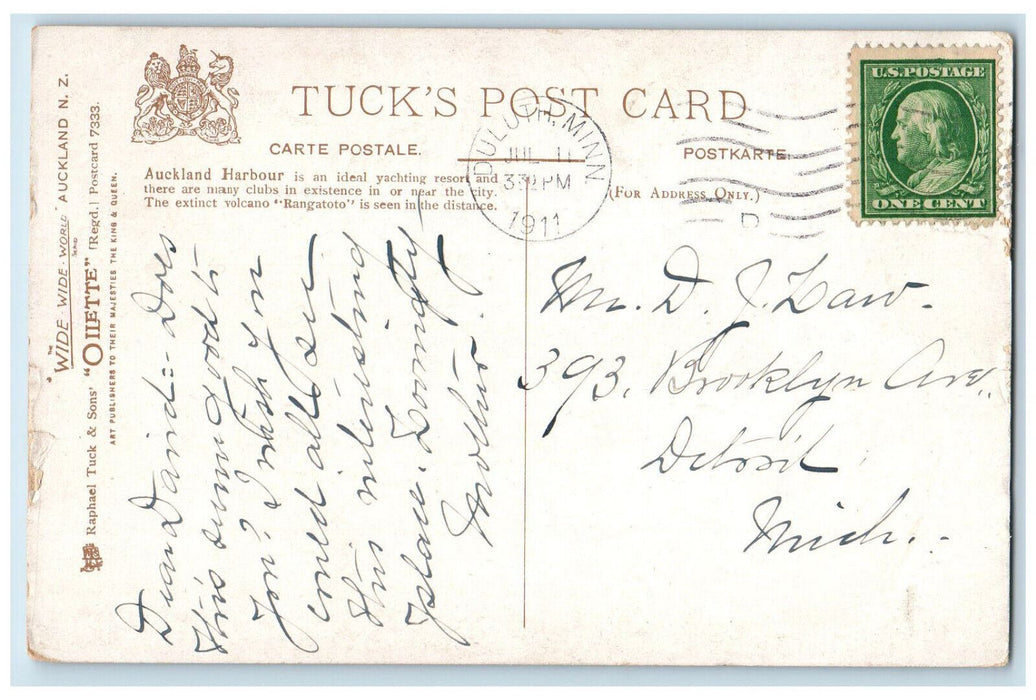 TUCK'S POST CARD
CARTE POSTALE.
POSTKARTE
(FOR ADDRESS ONLY.)
Auckland Harbour is an ideal yachting resort and
there are many clubs in existence in or near the city.
The extinct volcano "Rangatoto" is seen in the distance.
"THE WIDE·WIDE·WORLD" SERIES AUCKLAND N. Z.
Raphael Tuck & Sons' "OILETTE" [Regd.] Postcard 7333.
ART PUBLISHERS TO THEIR MAJESTIES THE KING & QUEEN.
DULUTH, MINN.
JUL 11
330 PM
1911
U.S. POSTAGE
ONE CENT
Dear David:- Does
this seem good to
you? I wish you
could all see
this interesting
place. Lovingly
Mother.
Mr. D. J. Law.
393. Brooklyn Ave.
Detroit
Mich.